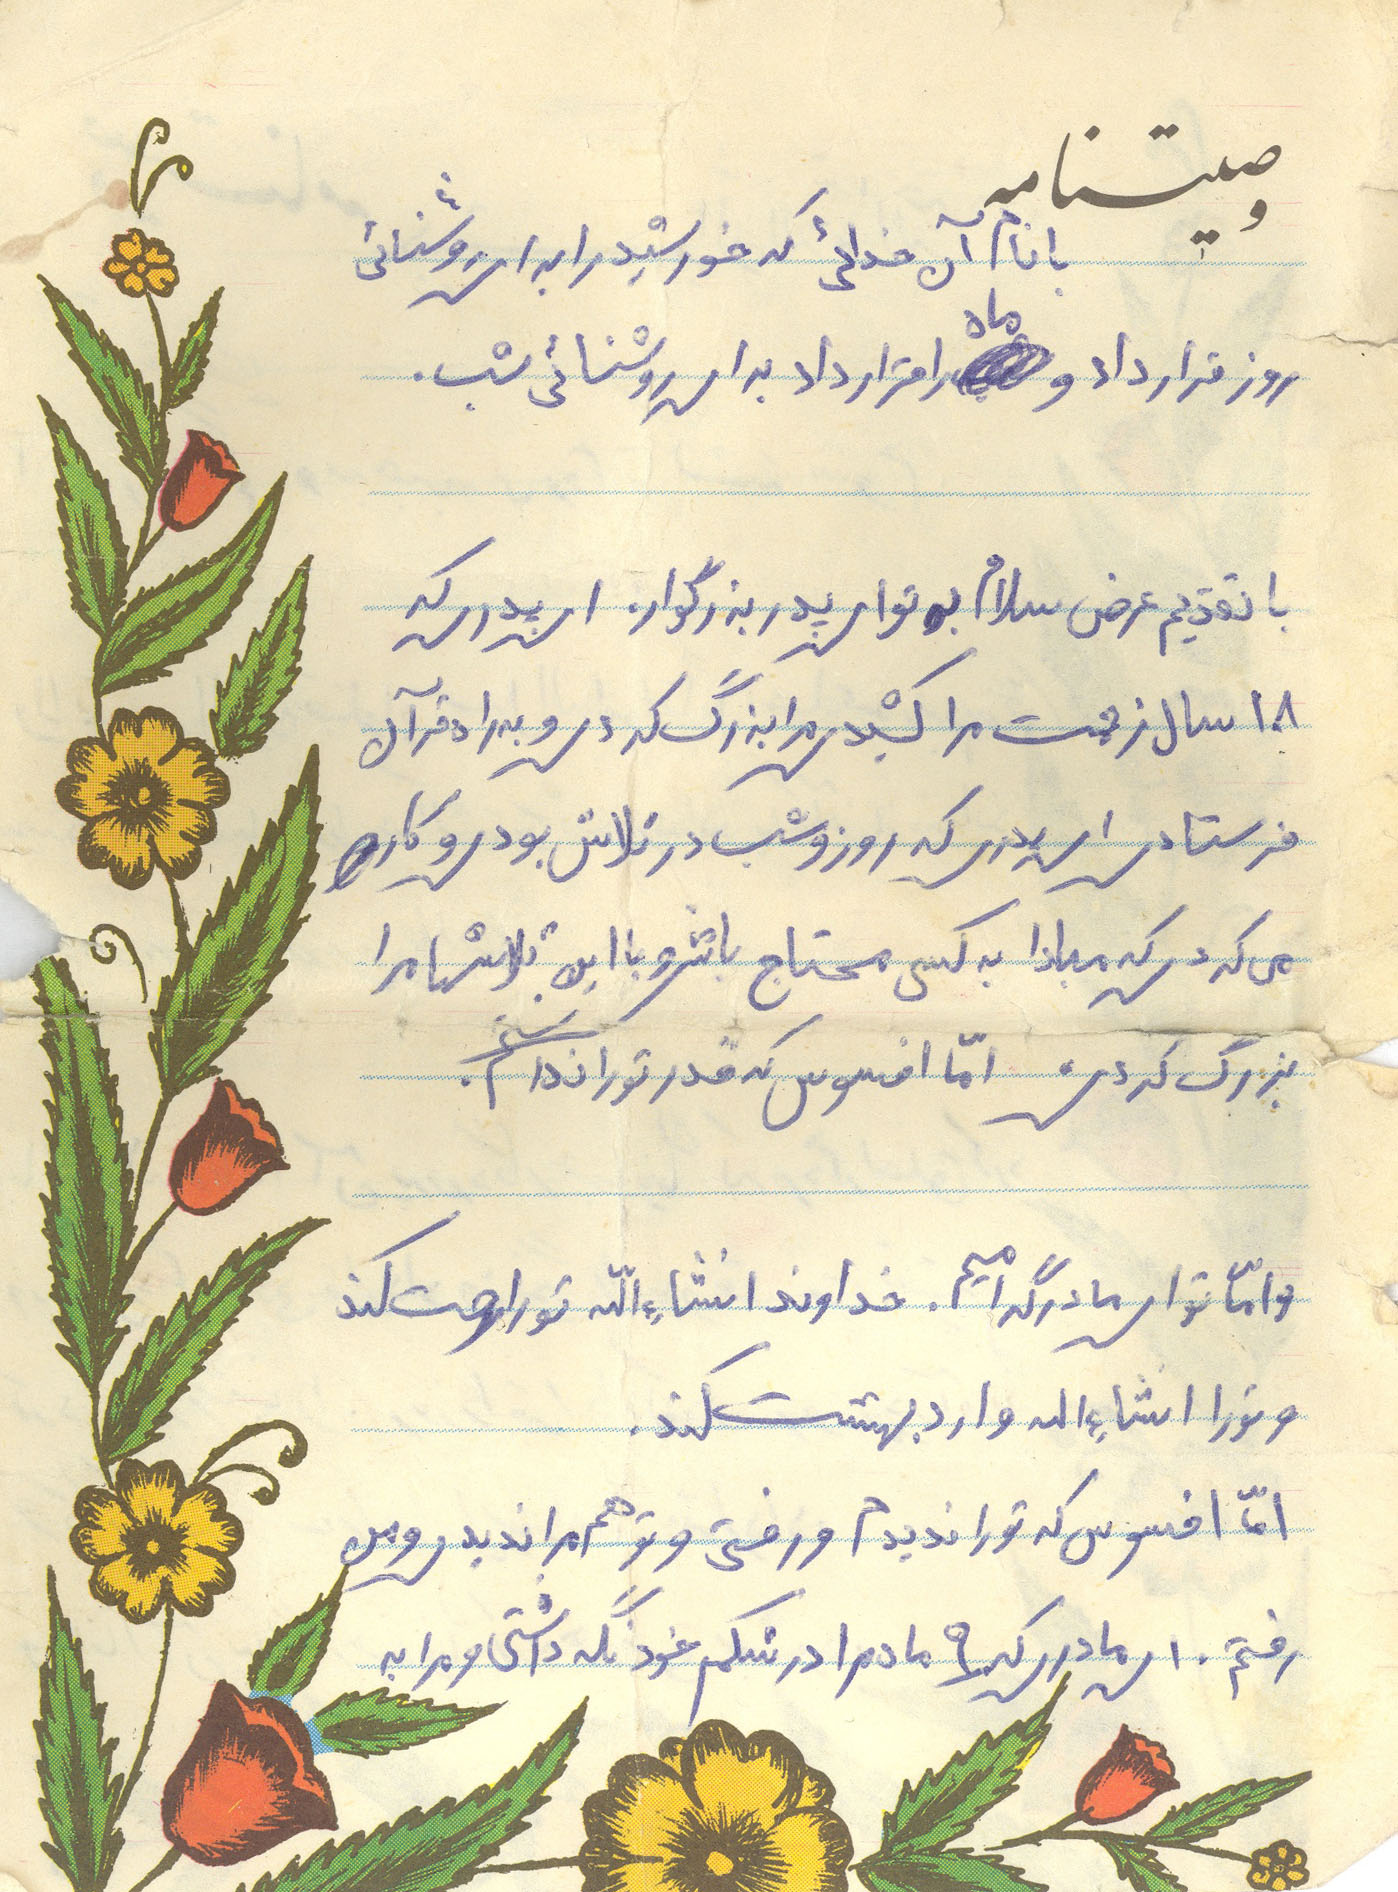 وصیتنامه
با نام آن خدائی که خورشید را برای روشنائی
روز قرار داد و ماه را قرار داد برای روشنائی شب.
با تقدیم عرض سلام به تو ای پدر بزرگوار. ای پدری که
۱۸ سال زحمت مرا کشیدی مرا بزرگ کردی و به راه قرآن
فرستادی ای پدری که روز و شب در تلاش بودی و کار
می کردی که مبادا به کسی محتاج باشی و با این تلاشها مرا
بزرگ کردی. امّا افسوس که قدر تو را ندانستم.
و امّا تو ای مادر گرامیم. خداوند انشاءالله تو را رحمت کند
و تو را انشاءالله وارد بهشت کند.
امّا افسوس که تو را ندیدم و رفتی و تو هم مرا ندیدی و من
رفتم. ای مادری که ۹ ماه مرا در شکم خود نگه داشتی و مرا به